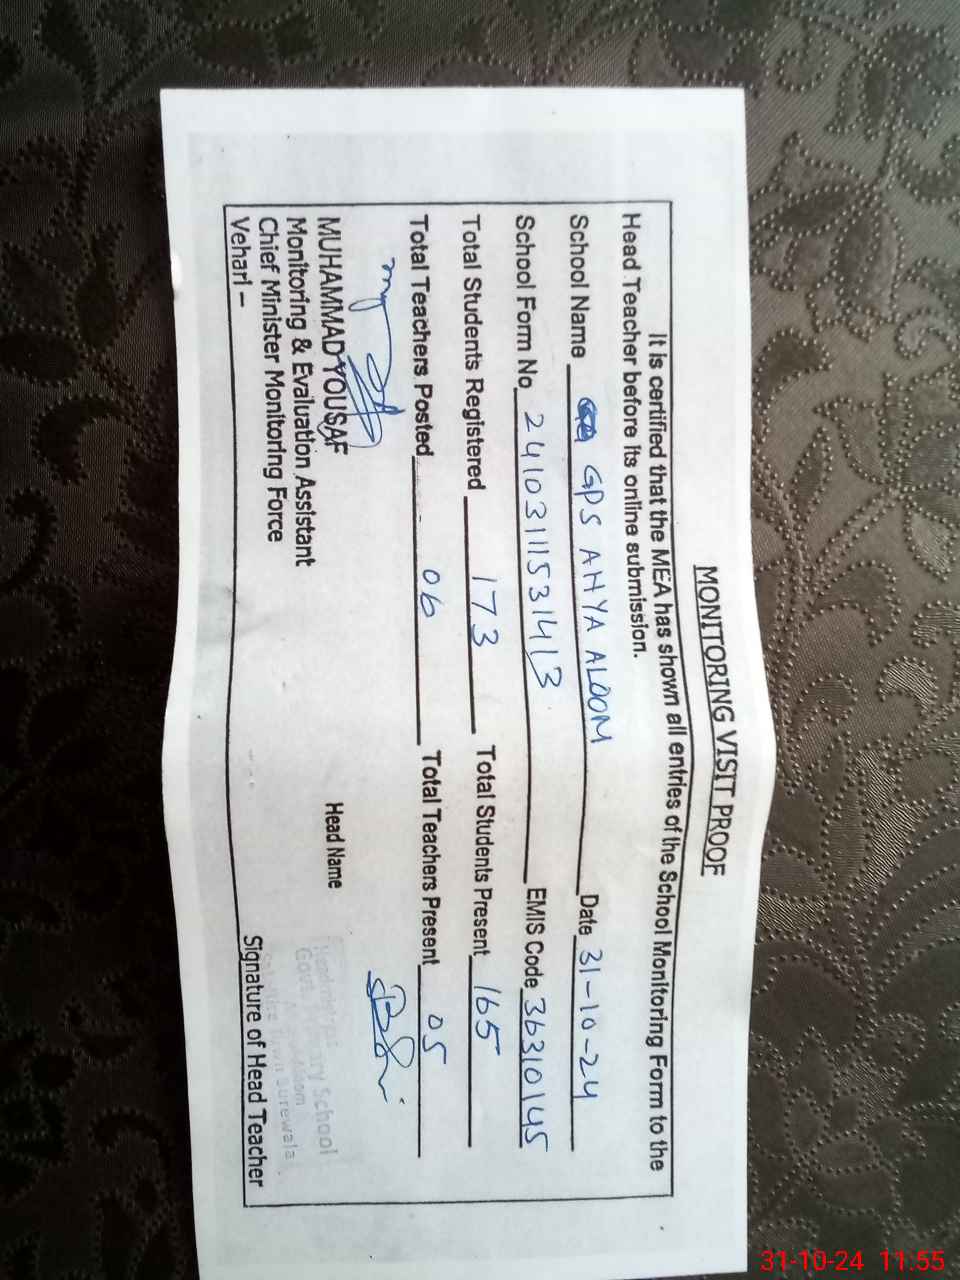 MONITORING VISIT PROOF
It is certified that the MEA has shown all entries of the School Monitoring Form to the
Head Teacher before its online submission.
School Name GPS AHYA ALOOM Date 31-10-24
School Form No 24103111531413 EMIS Code 36310145
Total Students Registered 173 Total Students Present 165
Total Teachers Posted 06 Total Teachers Present 05
MUHAMMAD YOUSAF Head Name
Monitoring & Evaluation Assistant
Chief Minister Monitoring Force
Vehari -
Govt. Primary School
Aloom
Town Burewala
Signature of Head Teacher
31-10-24 11:55